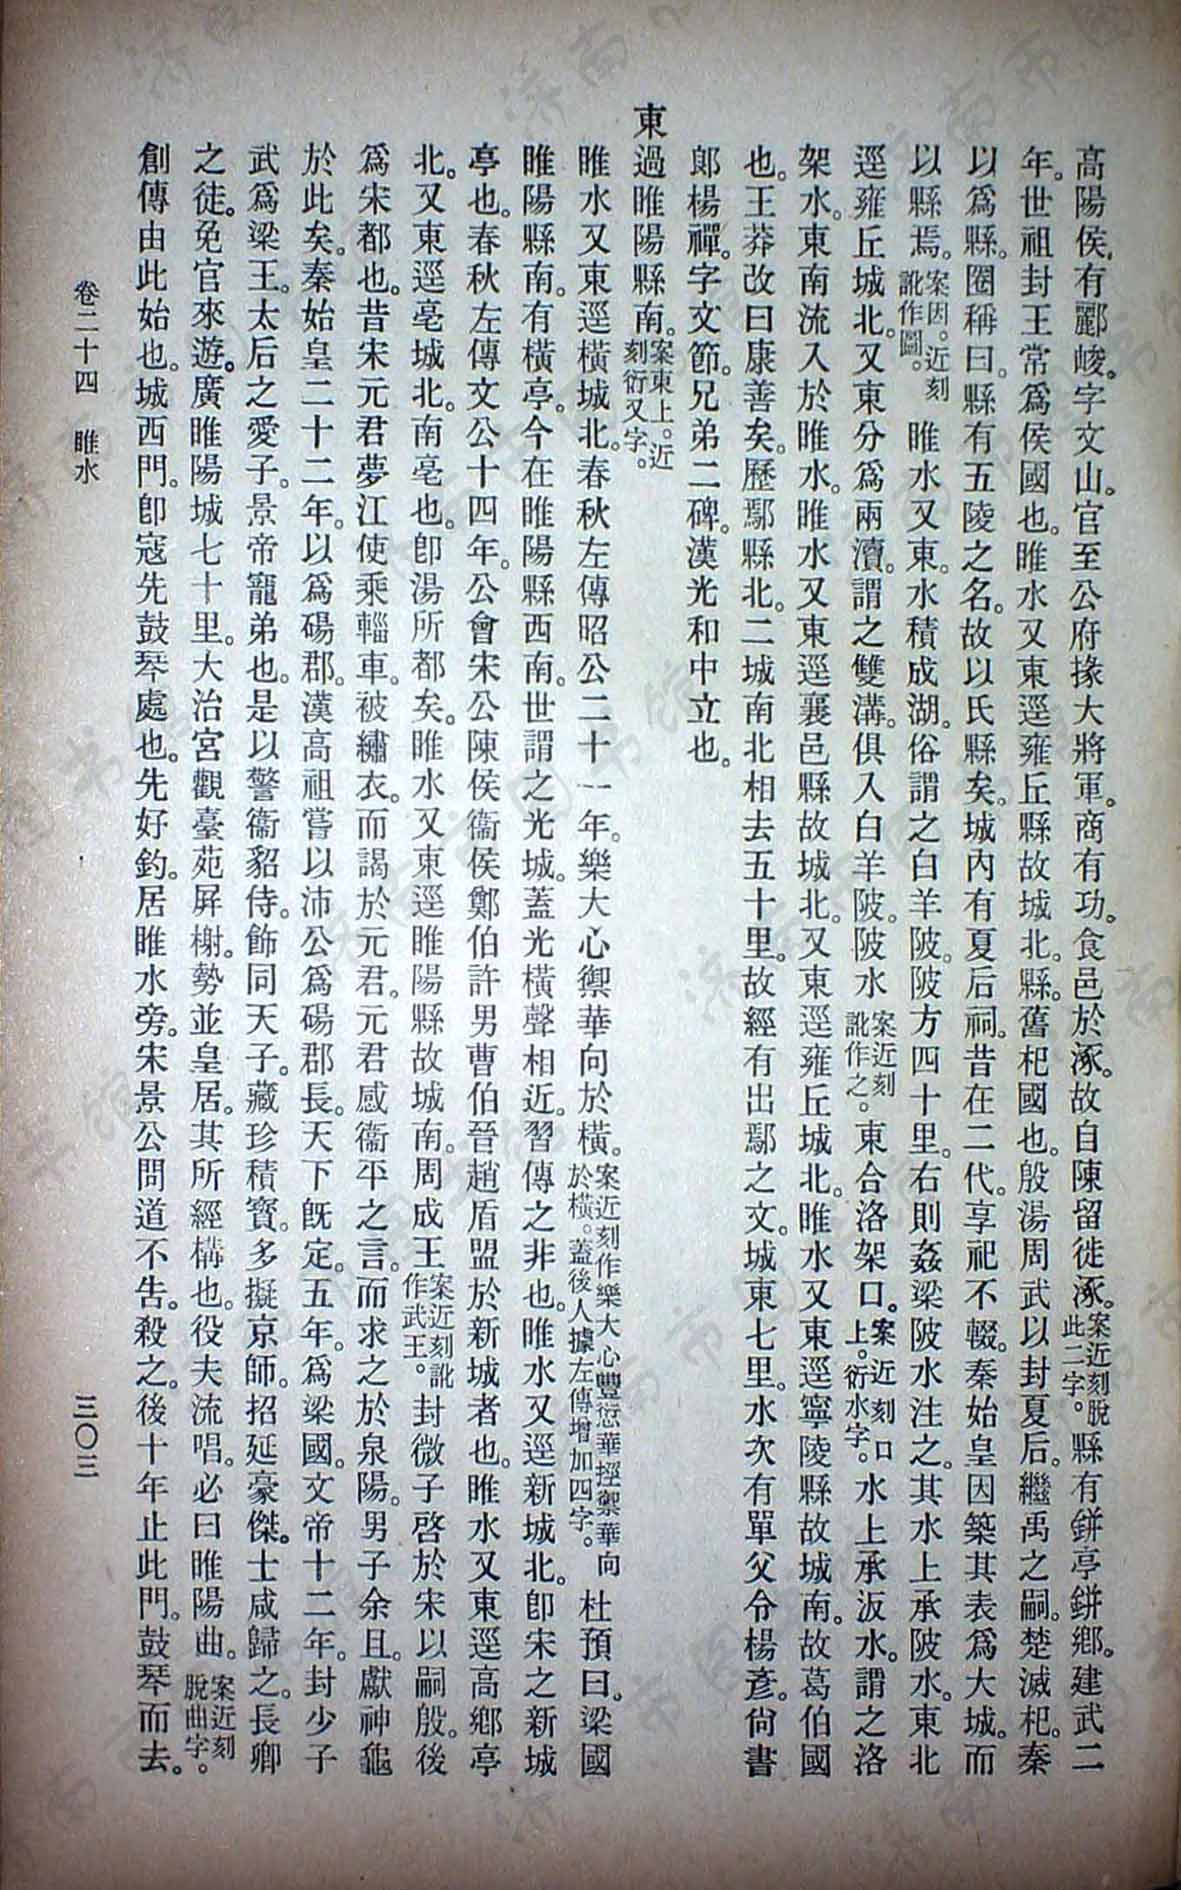 高陽侯。有酈峻。字文山。官至公府掾大將軍。商有功。食邑於涿。故自陳留徙涿。案近刻脫此二字。縣有鉼亭鉼鄉。建武二
年。世祖封王常爲侯國也。睢水又東逕雍丘縣故城北。縣。舊杞國也。殷湯周武以封夏后。繼禹之嗣。楚滅杞。秦
以爲縣。圈稱曰。縣有五陵之名。故以氏縣矣。城內有夏后祠。昔在二代。享祀不輟。秦始皇因築其表爲大城。而
以縣焉。案因。近刻訛作圖。睢水又東。水積成湖。俗謂之白羊陂。陂方四十里。右則姦梁陂水注之。其水上承陂水。東北
逕雍丘城北。又東分爲兩瀆。謂之雙溝。俱入白羊陂。陂水案近刻訛作之。東合洛架口。案近刻口上。衍水字。水上承汳水。謂之洛
架水。東南流入於睢水。睢水又東逕襄邑縣故城北。又東逕雍丘城北。睢水又東逕寧陵縣故城南。故葛伯國
也。王莽改曰康善矣。歷鄢縣北。二城南北相去五十里。故經有出鄢之文。城東七里。水次有單父令楊彥。尙書
郎楊禪。字文節。兄弟二碑。漢光和中立也。
東過睢陽縣南。案東上。近刻衍又字。
睢水又東逕橫城北。春秋左傳昭公二十一年。樂大心禦華向於橫。案近刻作樂大心豐愆華挳禦華向於橫。蓋後人據左傳增加四字。杜預曰。梁國
睢陽縣南。有橫亭。今在睢陽縣西南。世謂之光城。蓋光橫聲相近。習傳之非也。睢水又逕新城北。卽宋之新城
亭也。春秋左傳文公十四年。公會宋公陳侯衞侯鄭伯許男曹伯晉趙盾盟於新城者也。睢水又東逕高鄉亭
北。又東逕亳城北。南亳也。卽湯所都矣。睢水又東逕睢陽縣故城南。周成王案近刻訛作武王。封微子啓於宋以嗣殷。後
爲宋都也。昔宋元君夢江使乘輜車。被繡衣。而謁於元君。元君感衞平之言。而求之於泉陽。男子余且。獻神龜
於此矣。秦始皇二十二年。以爲碭郡。漢高祖嘗以沛公爲碭郡長。天下旣定。五年。爲梁國。文帝十二年。封少子
武爲梁王。太后之愛子。景帝寵弟也。是以警衞貂侍。飾同天子。藏珍積寶。多擬京師。招延豪傑。士咸歸之。長卿
之徒。免官來遊。廣睢陽城七十里。大治宮觀臺苑屏榭。勢並皇居。其所經構也。役夫流唱。必曰睢陽曲。案近刻脫曲字。
創傳由此始也。城西門。卽寇先鼓琴處也。先好釣。居睢水旁。宋景公問道不告。殺之。後十年止此門。鼓琴而去。
卷二十四　睢水
三〇三